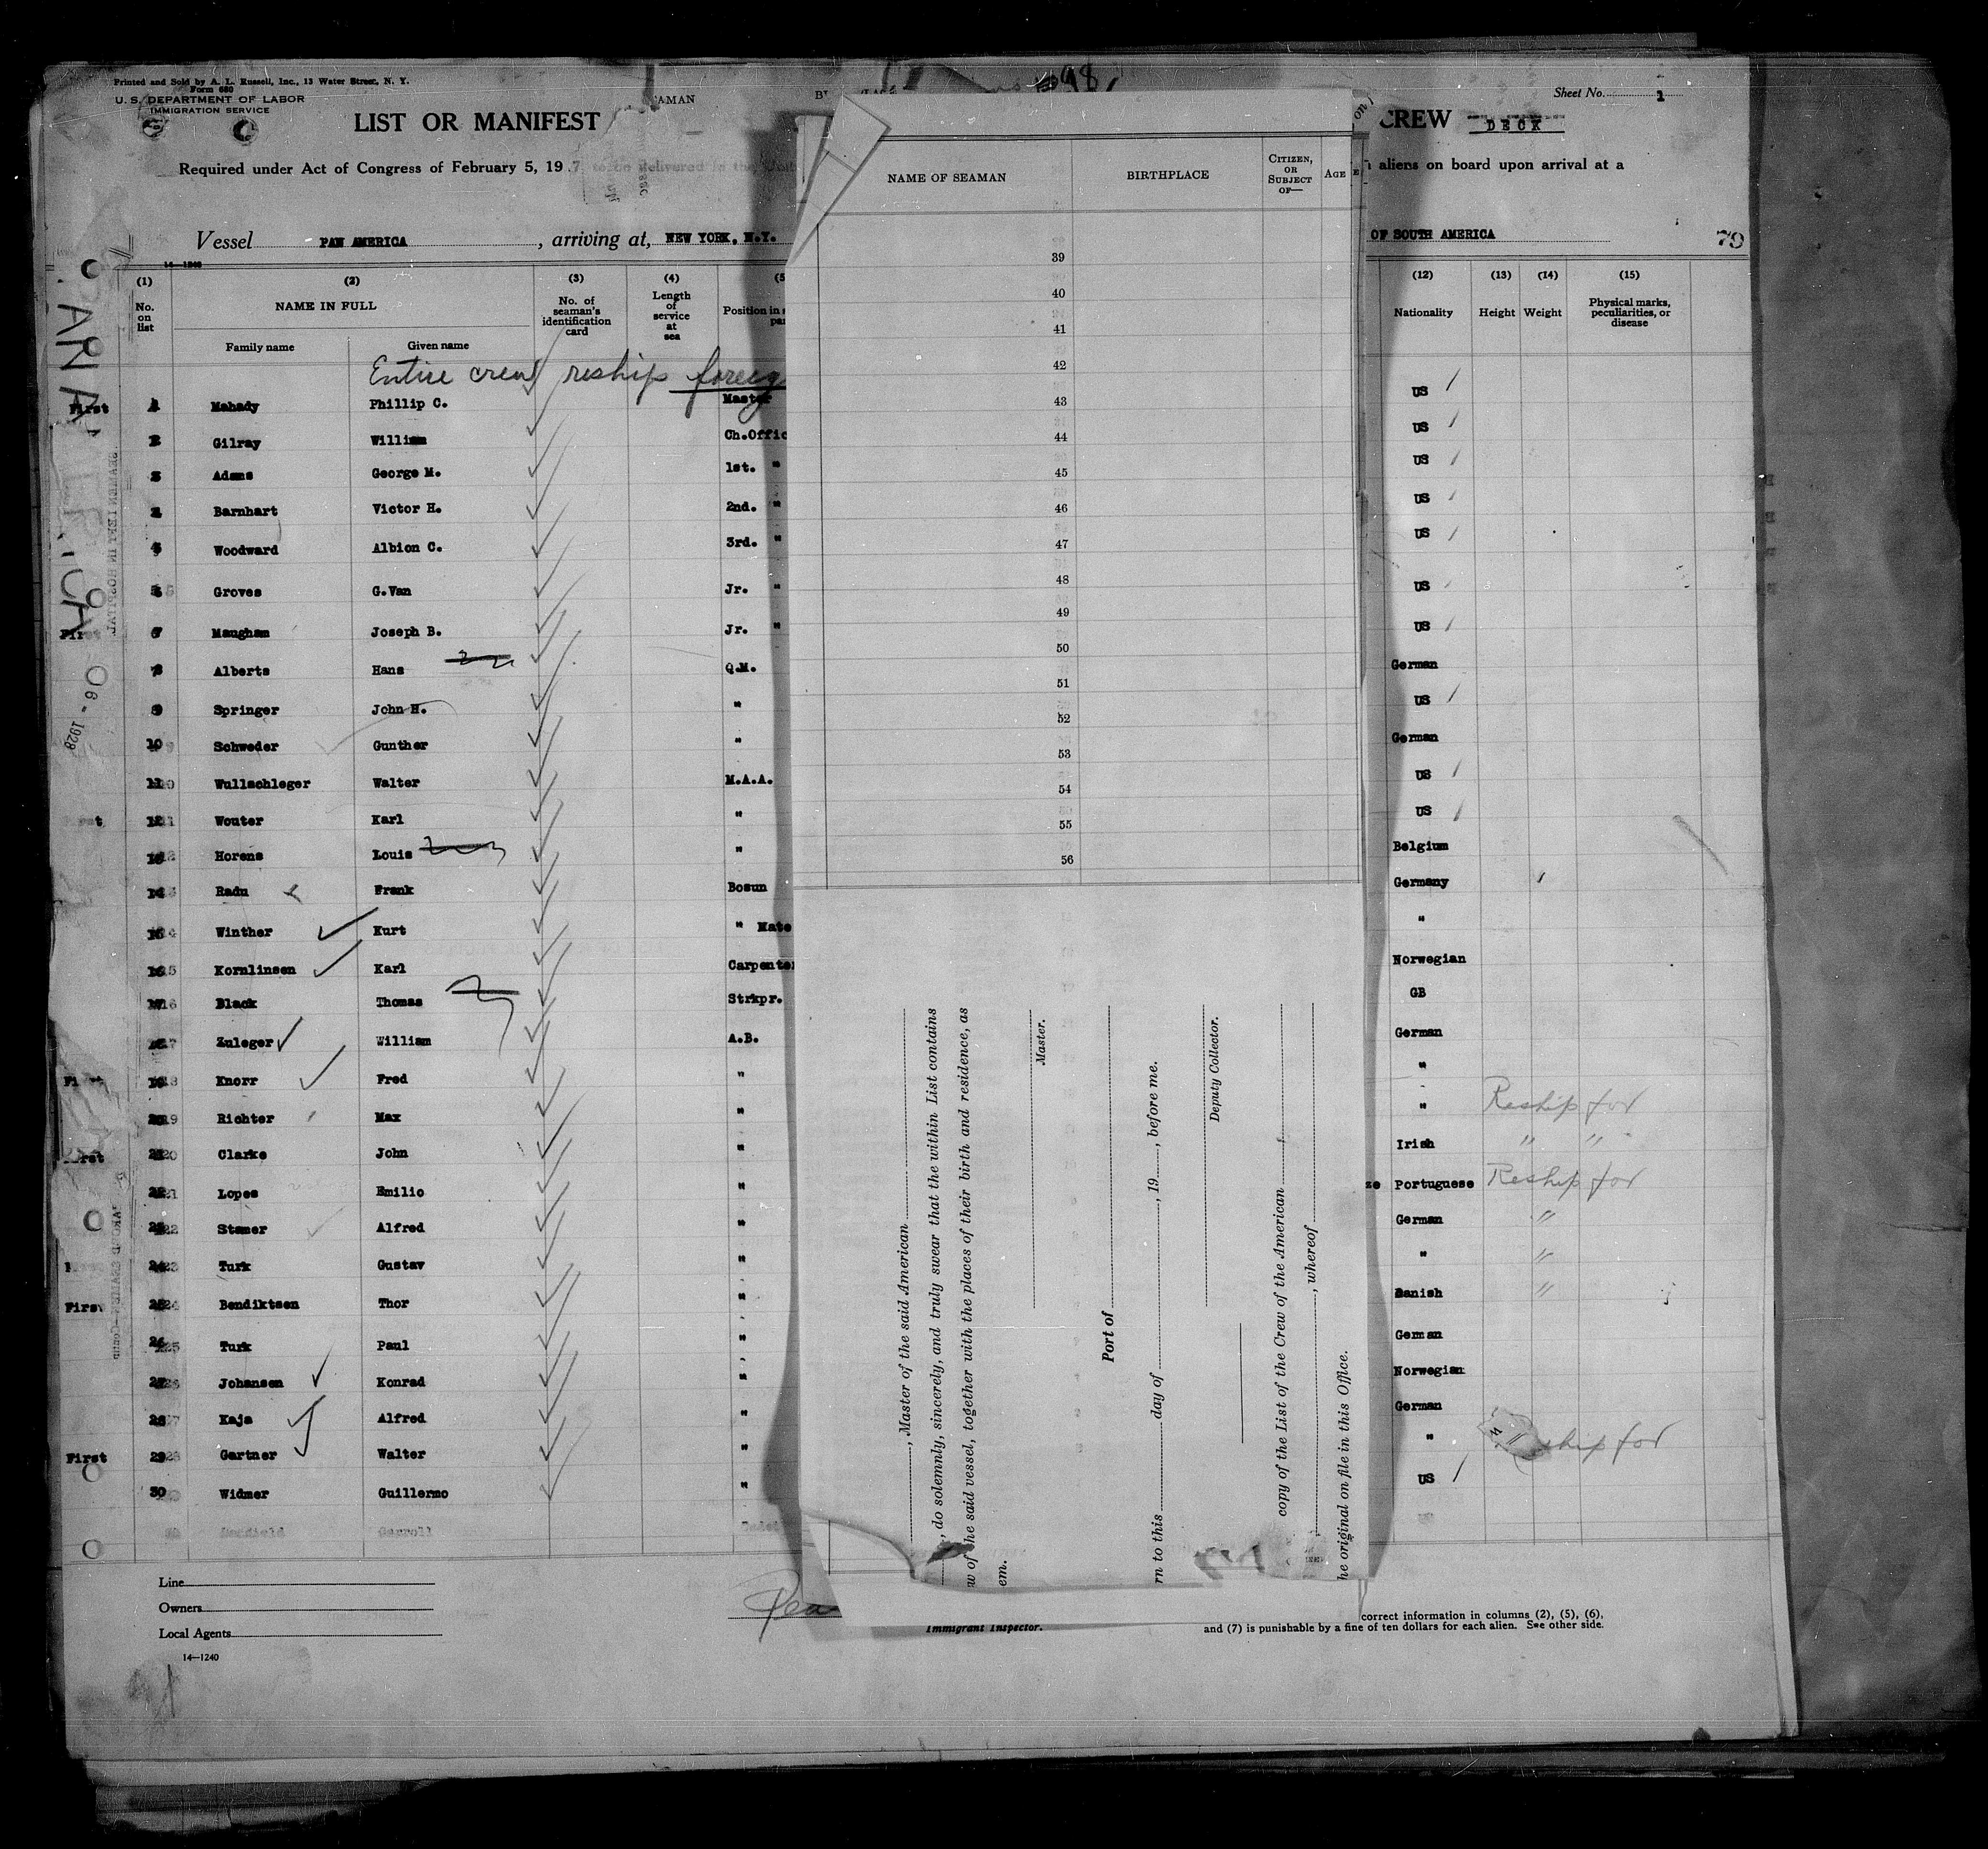 Printed and Sold by A. L. Russell, Inc., 13 Water Street, N. Y.
Form 680
U. S. DEPARTMENT OF LABOR
IMMIGRATION SERVICE
LIST OR MANIFEST
CREW DECK
Sheet No. 1
Required under Act of Congress of February 5, 19
aliens on board upon arrival at a
Vessel PAN AMERICA, arriving at, NEW YORK, N.Y.
OF SOUTH AMERICA
79
14—1240
(1) (2) (3) (4) (5 (12) (13) (14) (15)
No. on list
NAME IN FULL
Family name Given name
No. of seaman's identification card
Length of service at sea
Position in
Nationality Height Weight
Physical marks, peculiarities, or disease
Entire crew reship foreig
First 1 Mahady Phillip C. Master US
2 Gilray William Ch.Offic US
3 Adams George M. 1st. " US
Barnhart Victor H. 2nd. " US
Woodward Albion C. 3rd. " US
Groves G.Van Jr. " US
Maugham Joseph B. Jr. " US
Alberts Hans Q.M. German
9 Springer John H. " US
10 Schweder Gunther " German
11 Wullschleger Walter M.A.A. US
12 Wouter Karl " US
13 Horens Louis " Belgium
14 Radu Frank Bosun Germany
15 Winther Kurt " Mate "
16 Kornlinsen Karl Carpenter Norwegian
17 Black Thomas Strkpr. GB
18 Zuleger William A.B. German
First 19 Knorr Fred " "
20 Richter Max " " Reship for
First 21 Clarke John " Irish " "
22 Lopes Emilio " Portuguese Reship for
23 Stamer Alfred " German "
24 Turk Gustav " " "
First 25 Bendiktsen Thor " Danish "
26 Turk Paul " German
27 Johansen Konrad " Norwegian
28 Kaja Alfred " German
First 29 Gartner Walter " " ship for
30 Widmer Guillermo " US
Carroll
Line
Owners
Local Agents
14—1240
Immigrant Inspector.
correct information in columns (2), (5), (6),
and (7) is punishable by a fine of ten dollars for each alien. See other side.
NAME OF SEAMAN
BIRTHPLACE
CITIZEN, OR SUBJECT OF—
AGE
39
40
41
42
43
44
45
46
47
48
49
50
51
52
53
54
55
56
, Master of the said American
, do solemnly, sincerely, and truly swear that the within List contains
of the said vessel, together with the places of their birth and residence, as
em.
Master.
Port of
rn to this day of , 19 , before me.
Deputy Collector.
copy of the List of the Crew of the American
, whereof
he original on file in this Office.